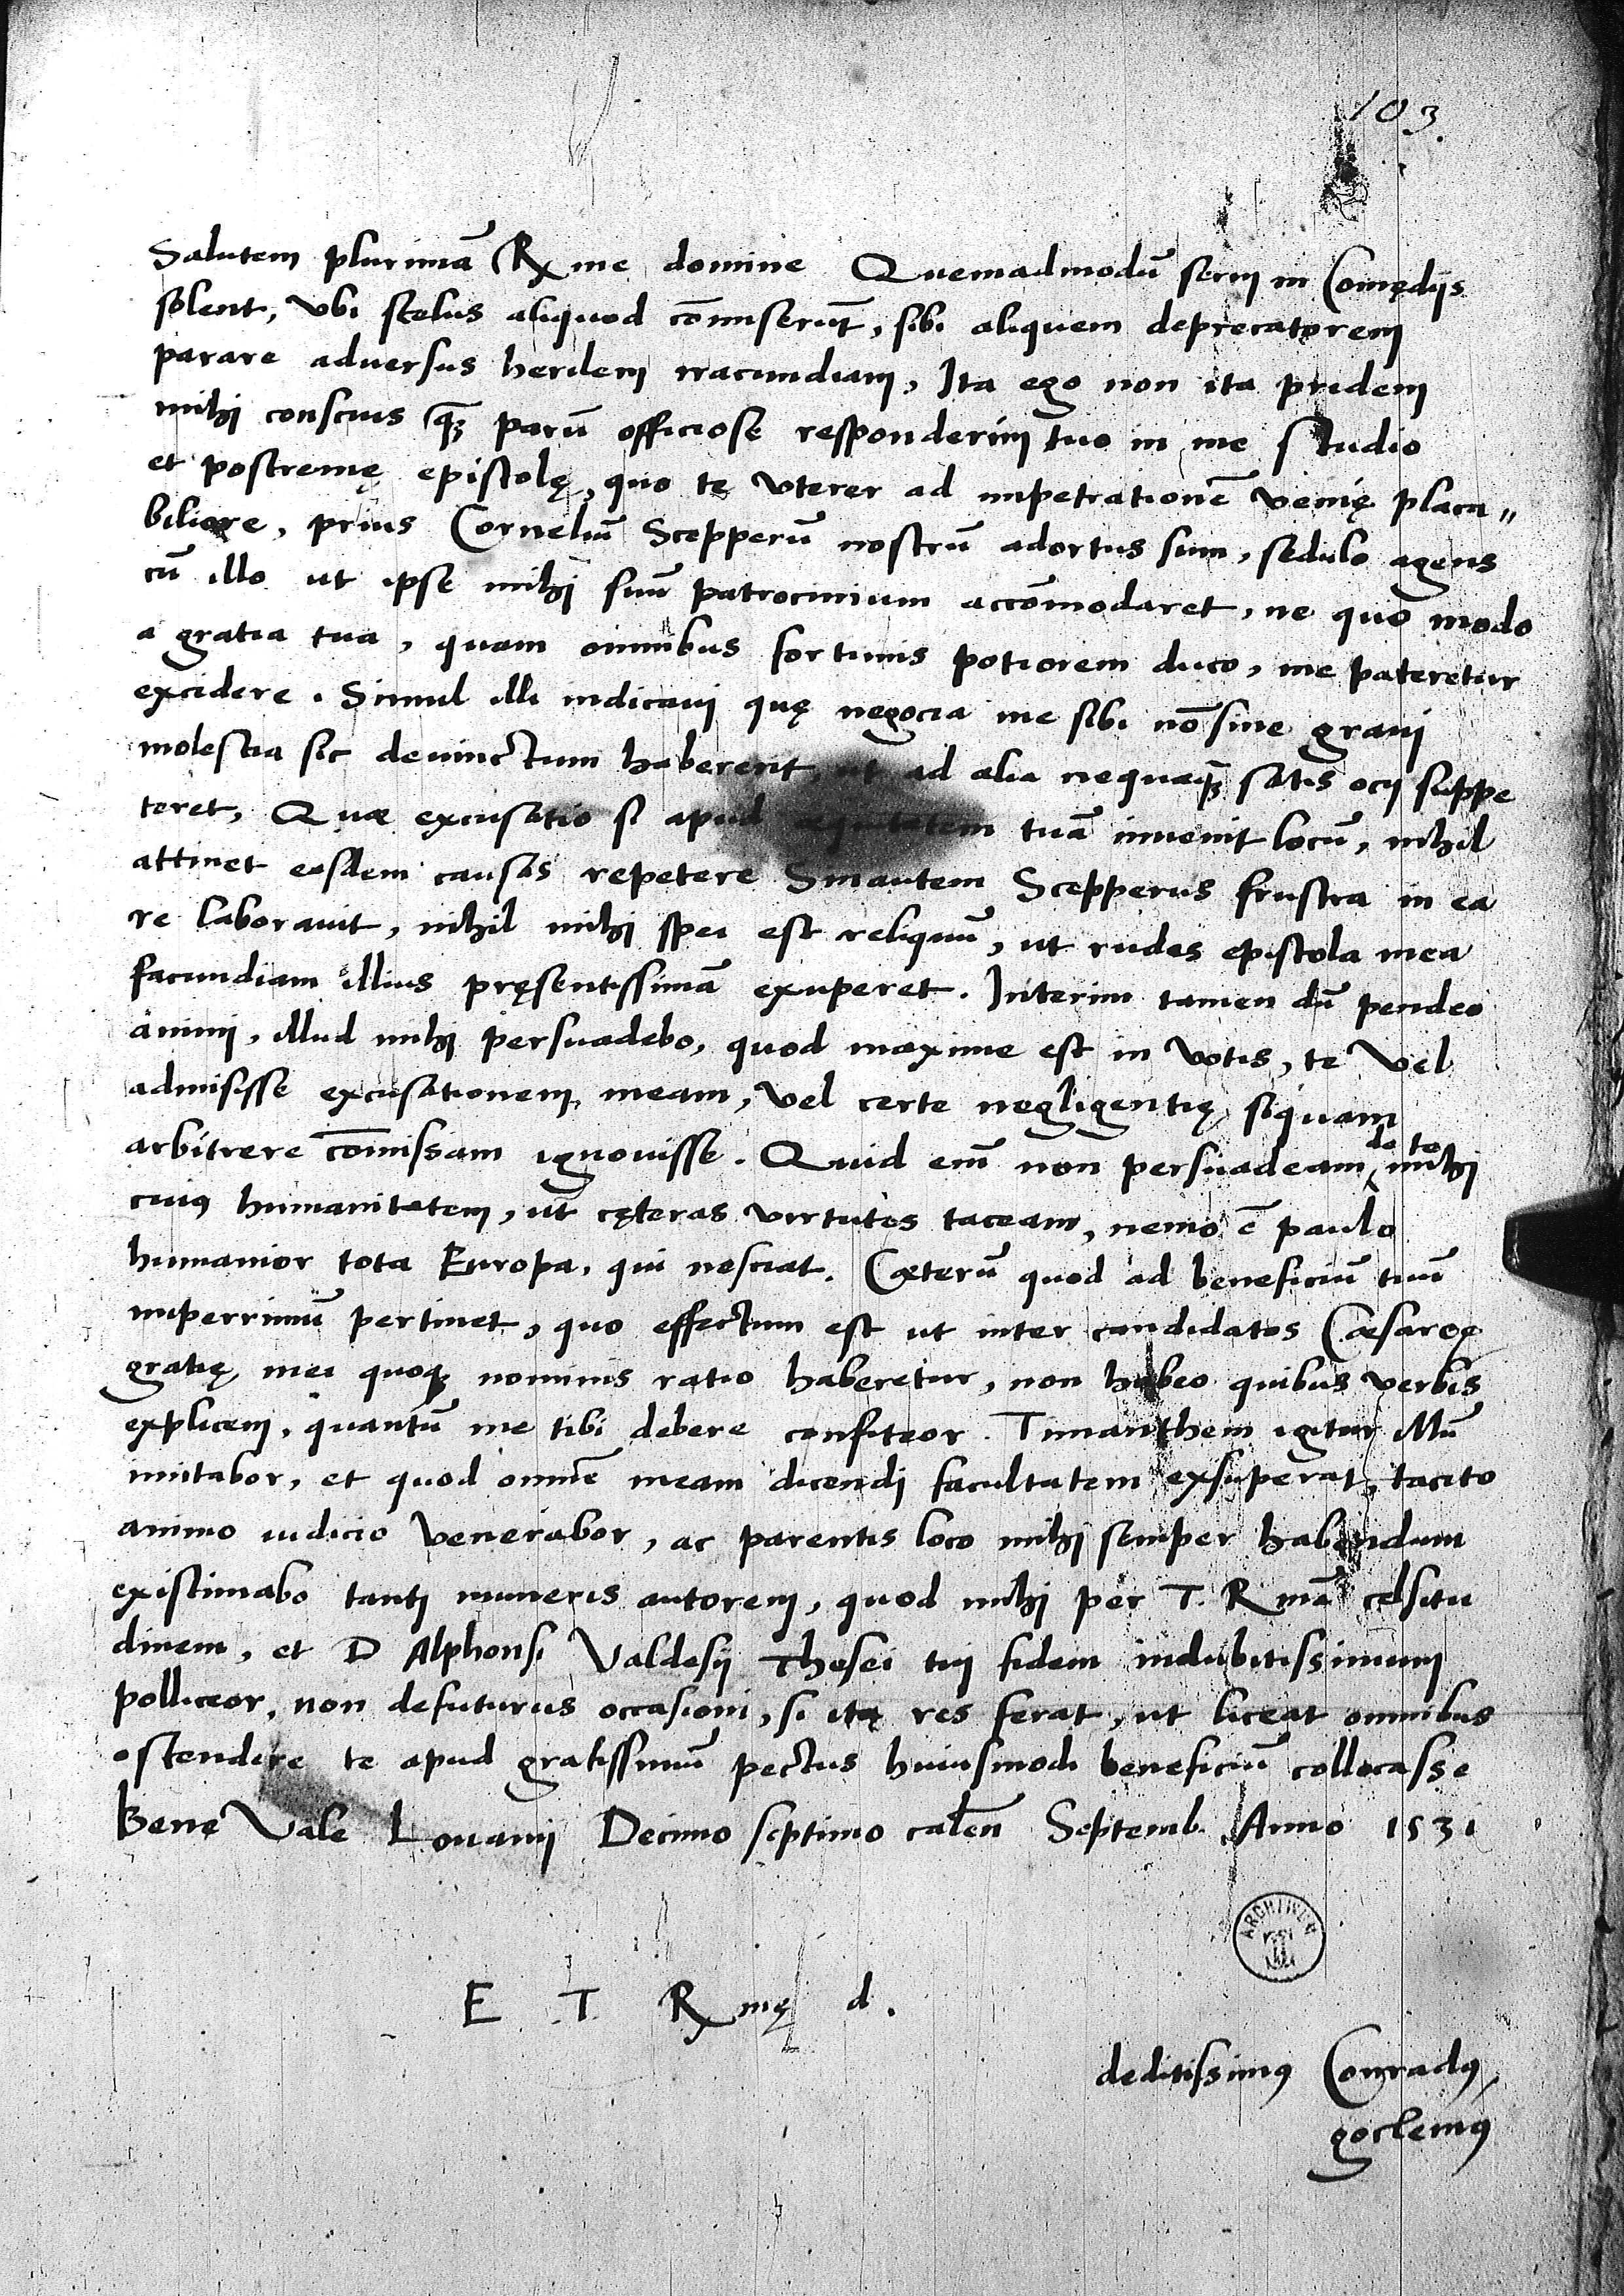 103.
Salutem plurimā Rme domine Quemadmodū serui in Comędijs
solent, vbi scelus aliquod cōmiserūt, sibi aliquem deprecatorem
parare aduersus herilem iracundiam, Ita ego non ita pridem
mihi conscius q̄ parū officiose responderim tuo in me studio
et postremę epistolę, quo te vterer ad impetrationē venię placa„
biliore, prius Corneliū Scepperū nostrū adortus sum, sedulo agens
cū illo ut ipse mihi suū patrocinium accōmodaret, ne quo modo
a gratia tua, quam omnibus fortunis potiorem duco, me pateretur
excidere. Simul illi indicaui quę negocia me sibi nō sine graui
molestia sic deuinctum haberent, ut ad alia nequaq̄ satis ocij suppe
teret, Quae excusatio si apud aequitatem tuā inuenit locū, nihil
attinet easdem causas repetere Sin autem Scepperus frustra in ea
re laborauit, nihil mihi spei est reliquū, ut rudes epistola mea
facundiam illius pręsentissimā exuperet. Interim tamen dū pendeo
animi, illud mihi persuadebo, quod maxime est in votis, te vel
admisisse excusationem meam, vel certe negligentię, siquam
arbitrere cōmissam ignouisse. Quid eīm non persuadeam de te mihi
cuiꝰ humanitatem, ut cęteras virtutes taceam, nemo ē paulo
humanior tota Europa, qui nesciat. Cæterū quod ad beneficiū tuū
nuperrimū pertinet, quo effectum est ut inter candidatos Cæsareę
gratię, mei quoqꝫ nominis ratio haberetur, non habeo quibus verbis
explicem, quantū me tibi debere confiteor. Timanthem igitur illū
imitabor, et quod omnē meam dicendi facultatem exsuperat, tacito
animo iudicio venerabor, ac parentis loco mihi semper habendum
existimabo tanti muneris autorem, quod mihi per T. Rmā celsitu
dinem, et D Alphonsi Valdesij Thesei tui fidem indubitissimum
polliceor, non defuturus occasioni, si ita res ferat, ut liceat omnibus
ostendere te apud gratissimū pectus huiusmodi beneficiū collocasse
Bene Vale Louanij Decimo septimo calēn Septemb. Anno 1531
E T Rmę d.
deditissimꝰ Conradꝰ
goclenīꝰ